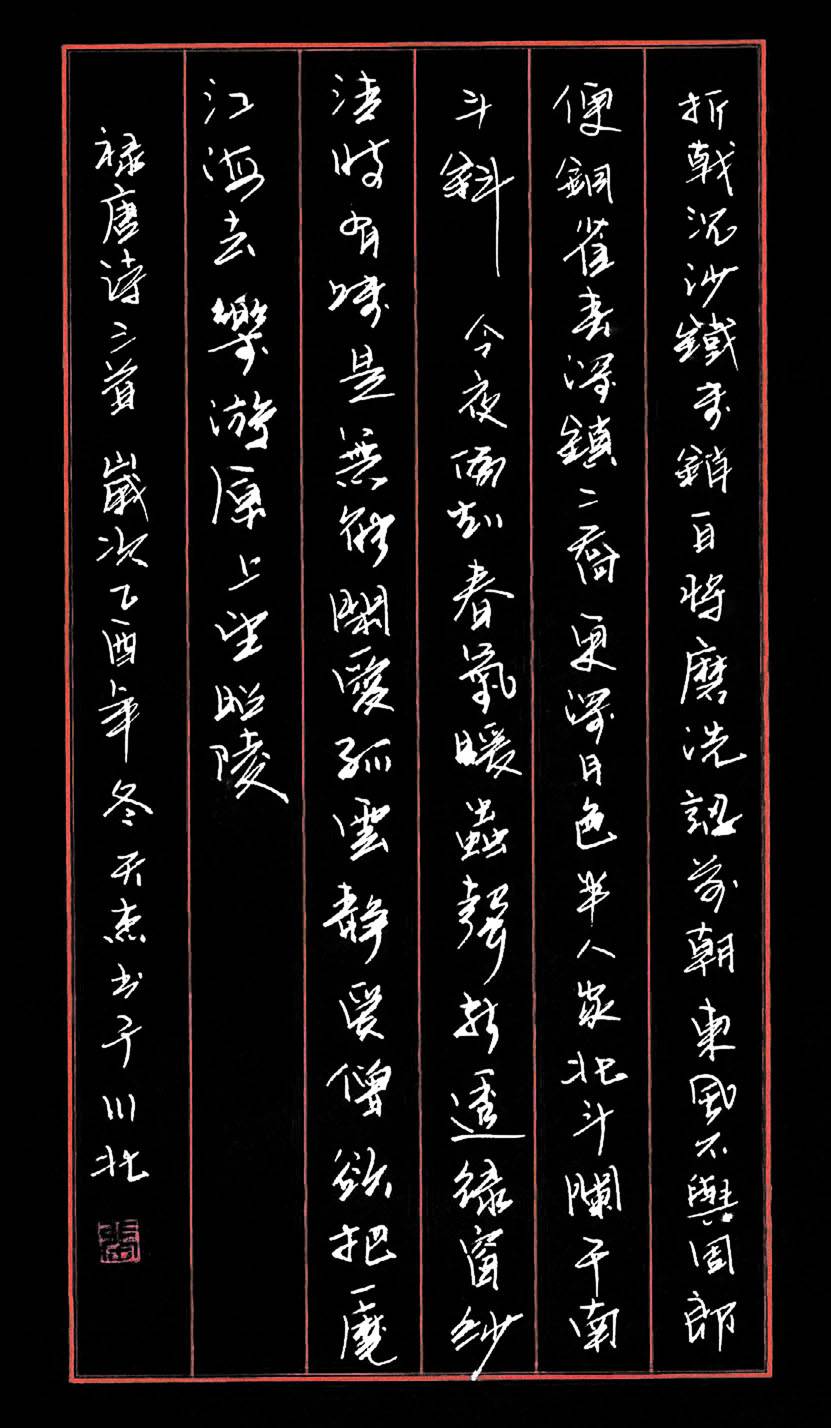 折戟沉沙鐵未銷自將磨洗認前朝東風不與周郎
便銅雀春深鎖二喬更深月色半人家北斗闌干南
斗斜 今夜偏知春氣暖蟲聲新透綠窗紗
清時有味是無能閑愛孤雲靜愛僧欲把一麾
江海去樂游原上望昭陵
禄唐詩三首 歲次乙酉年冬天杰书于川北